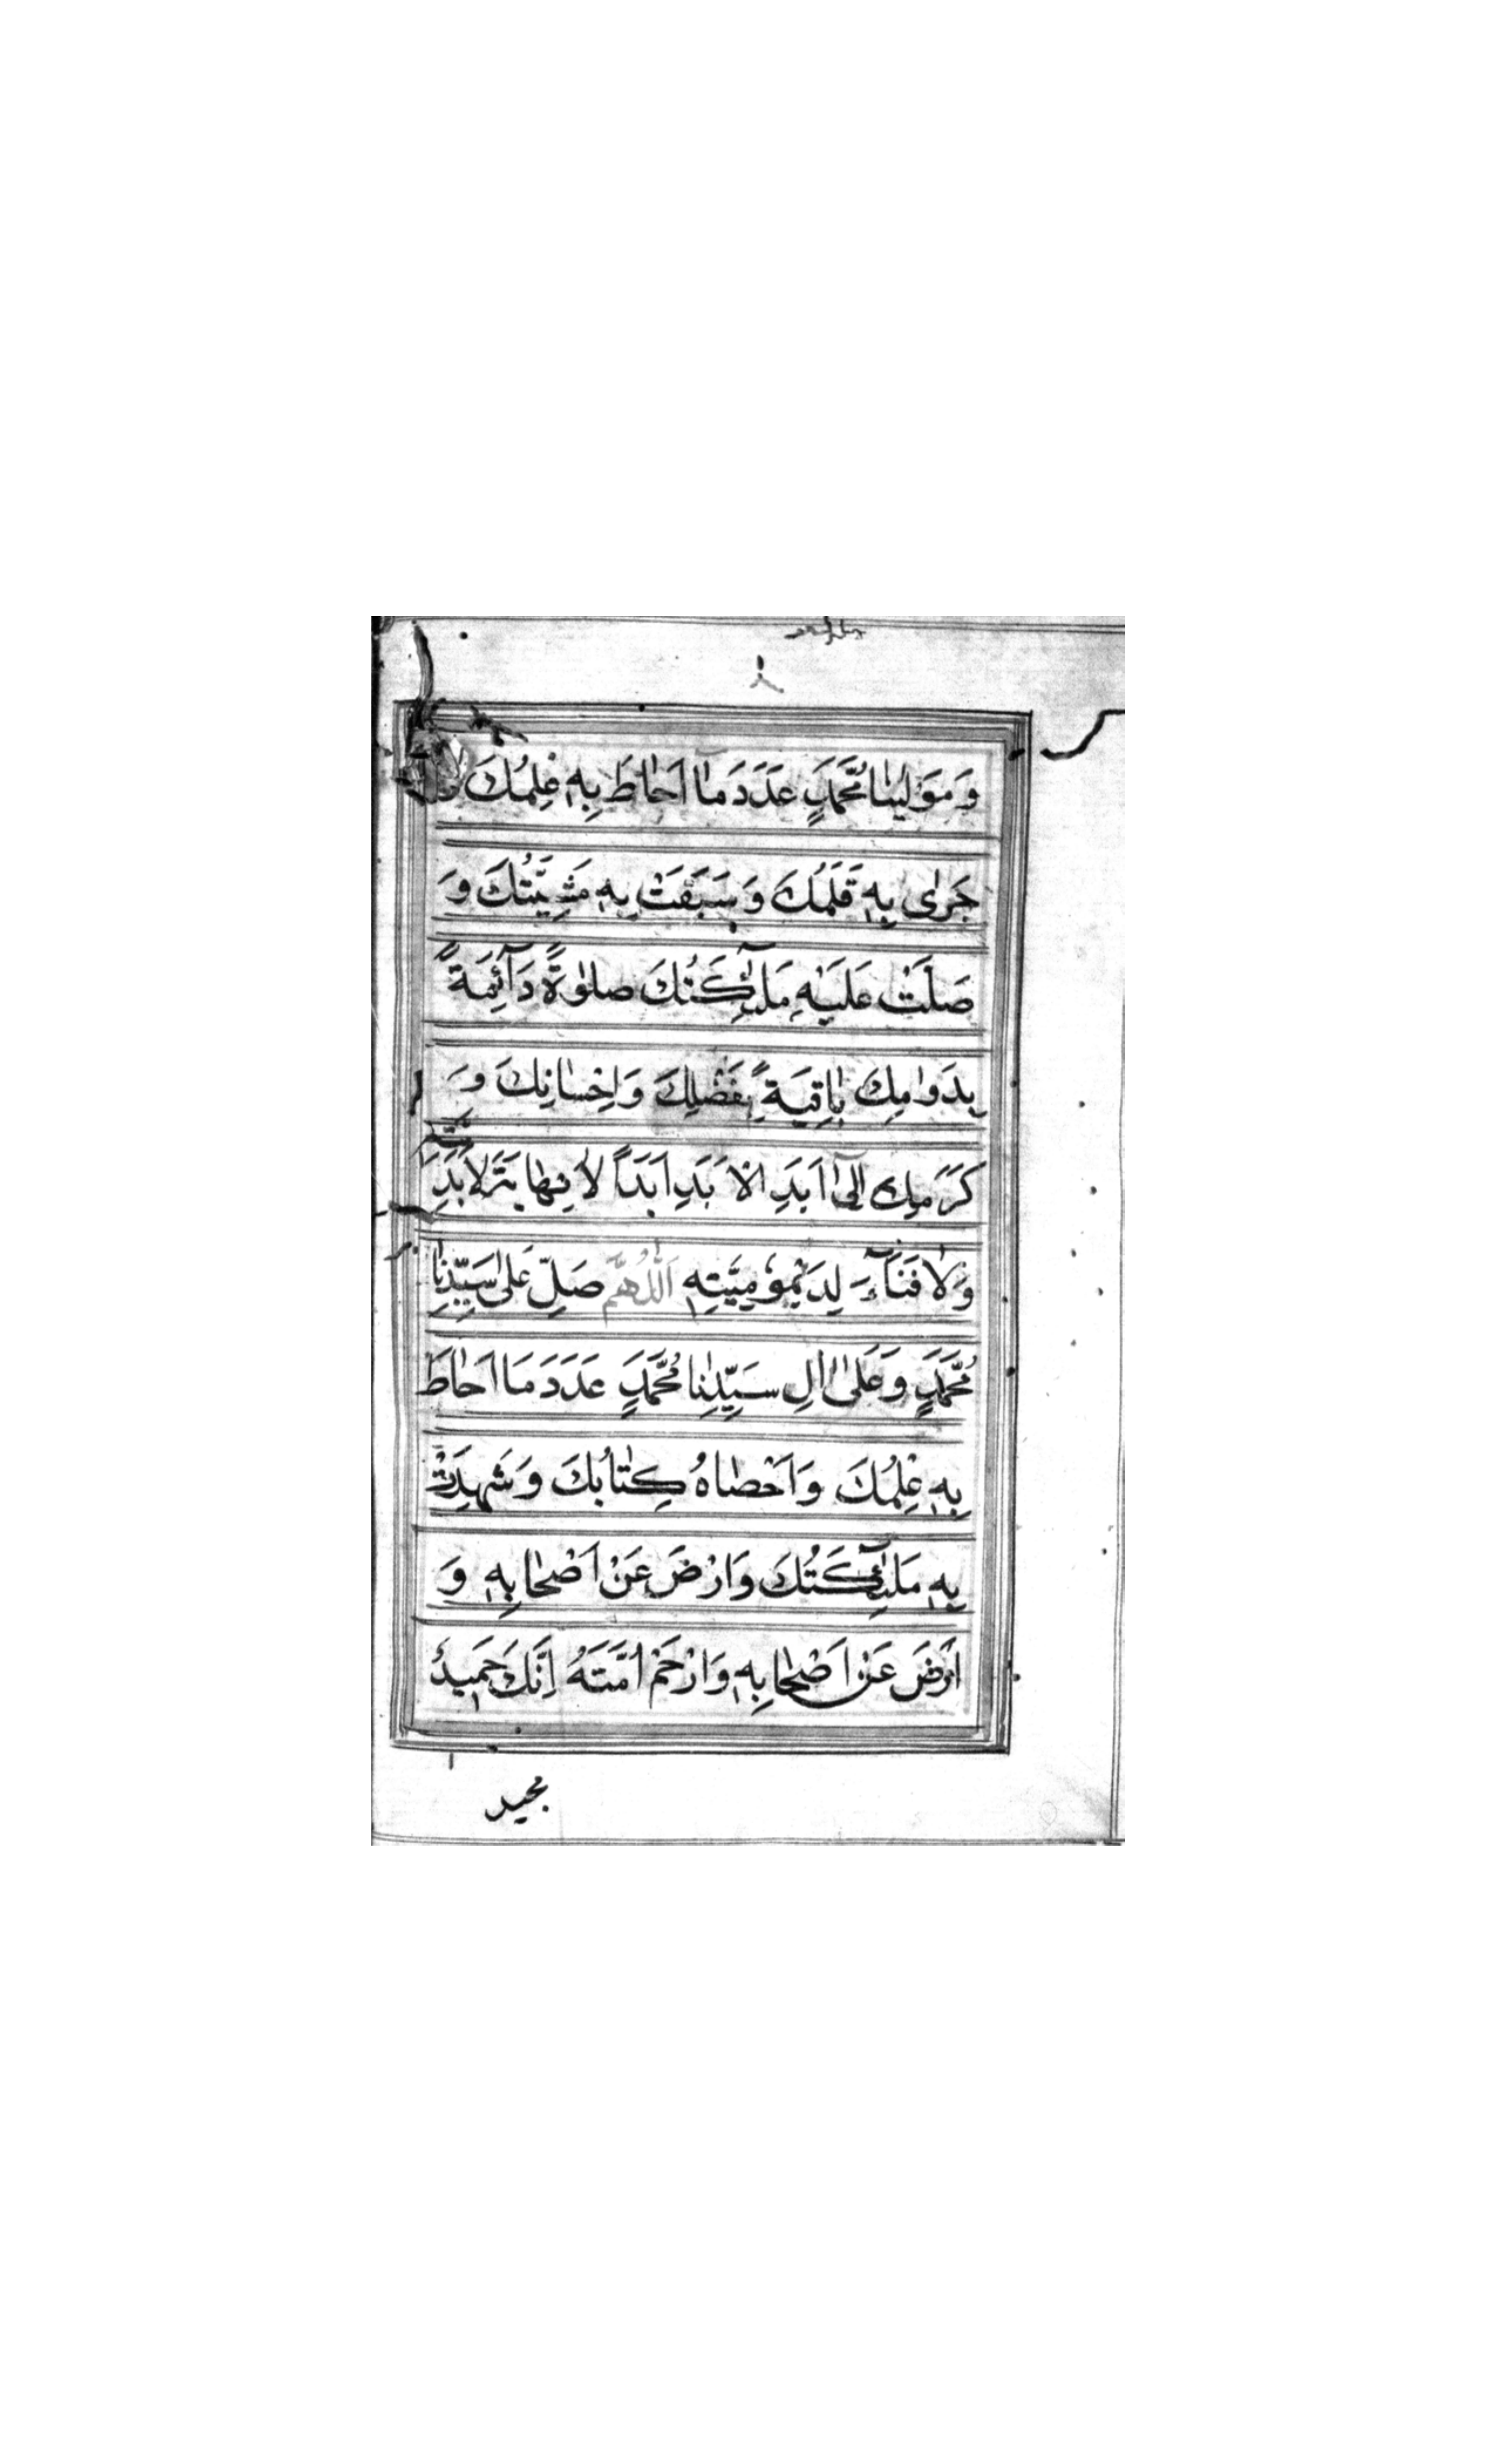 وَمَوْلٰينَا مُحَمَّدٍ عَدَدَ مٰا اَحٰاطَ بِهٖ عِلْمُكَ وَ
جَرٰى بِهٖ قَلَمُكَ وَ سَبَقَتْ بِهٖ مَشِيَّتُكَ وَ
صَلَّتْ عَلَيْهِ مَلٰٓئِكَتُكَ صَلٰوةً دَآئِمَةً
بِدَوٰامِكَ بٰاقِيَةً بِفَضْلِكَ وَاِحْسٰانِكَ وَ
كَرَمِكَ اِلٰٓى اَبَدِ الْاَبَدِ اَبَدًا لٰا نِهٰايَةَ لِاَبَدِيَّتِهٖ
وَلٰا فَنَآءَ لِدَيْمُومِيَّتِهٖ اَللّٰهُمَّ صَلِّ عَلٰى سَيِّدِنٰا
مُحَمَّدٍ وَعَلٰى اٰلِ سَيِّدِنٰا مُحَمَّدٍ عَدَدَ مَا اَحٰاطَ
بِهٖ عِلْمُكَ وَاَحْصٰاهُ كِتٰابُكَ وَشَهِدَتْ
بِهٖ مَلٰٓئِكَتُكَ وَارْضَ عَنْ اَصْحٰابِهٖ وَ
ارْضَ عَنْ اَصْحٰابِهٖ وَارْحَمْ اُمَّتَهُ اِنَّكَ حَمِيدٌ
مجيد